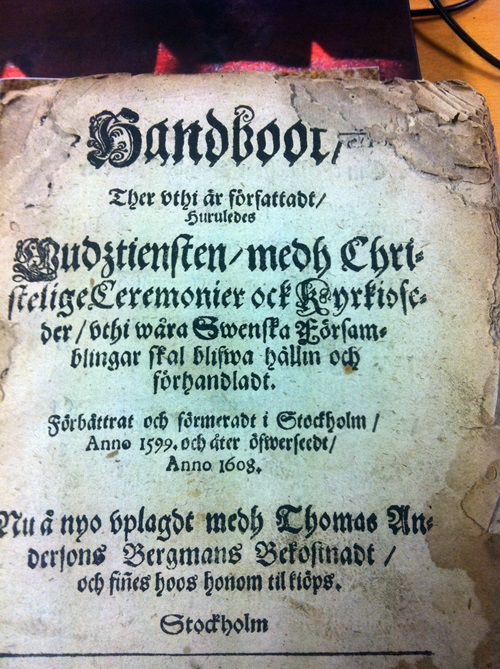 Handbook,
Ther vthi är författadt/
Huruledes
Gudztiensten/medh Chri-
stelige Ceremonier ock Kyrkiose-
der/vthi wåra Swenska Försam-
blingar skal blifwa hållin och
förhandladt.
Förbättrat och förmeradt i Stockholm/
Anno 1599. och åter öfwerseedt/
Anno 1608.
Nu å nyo vplagdt medh Thomas An-
dersons Bergmans Bekostnadt/
och fiñes hoos honom til kiöps.
Stockholm